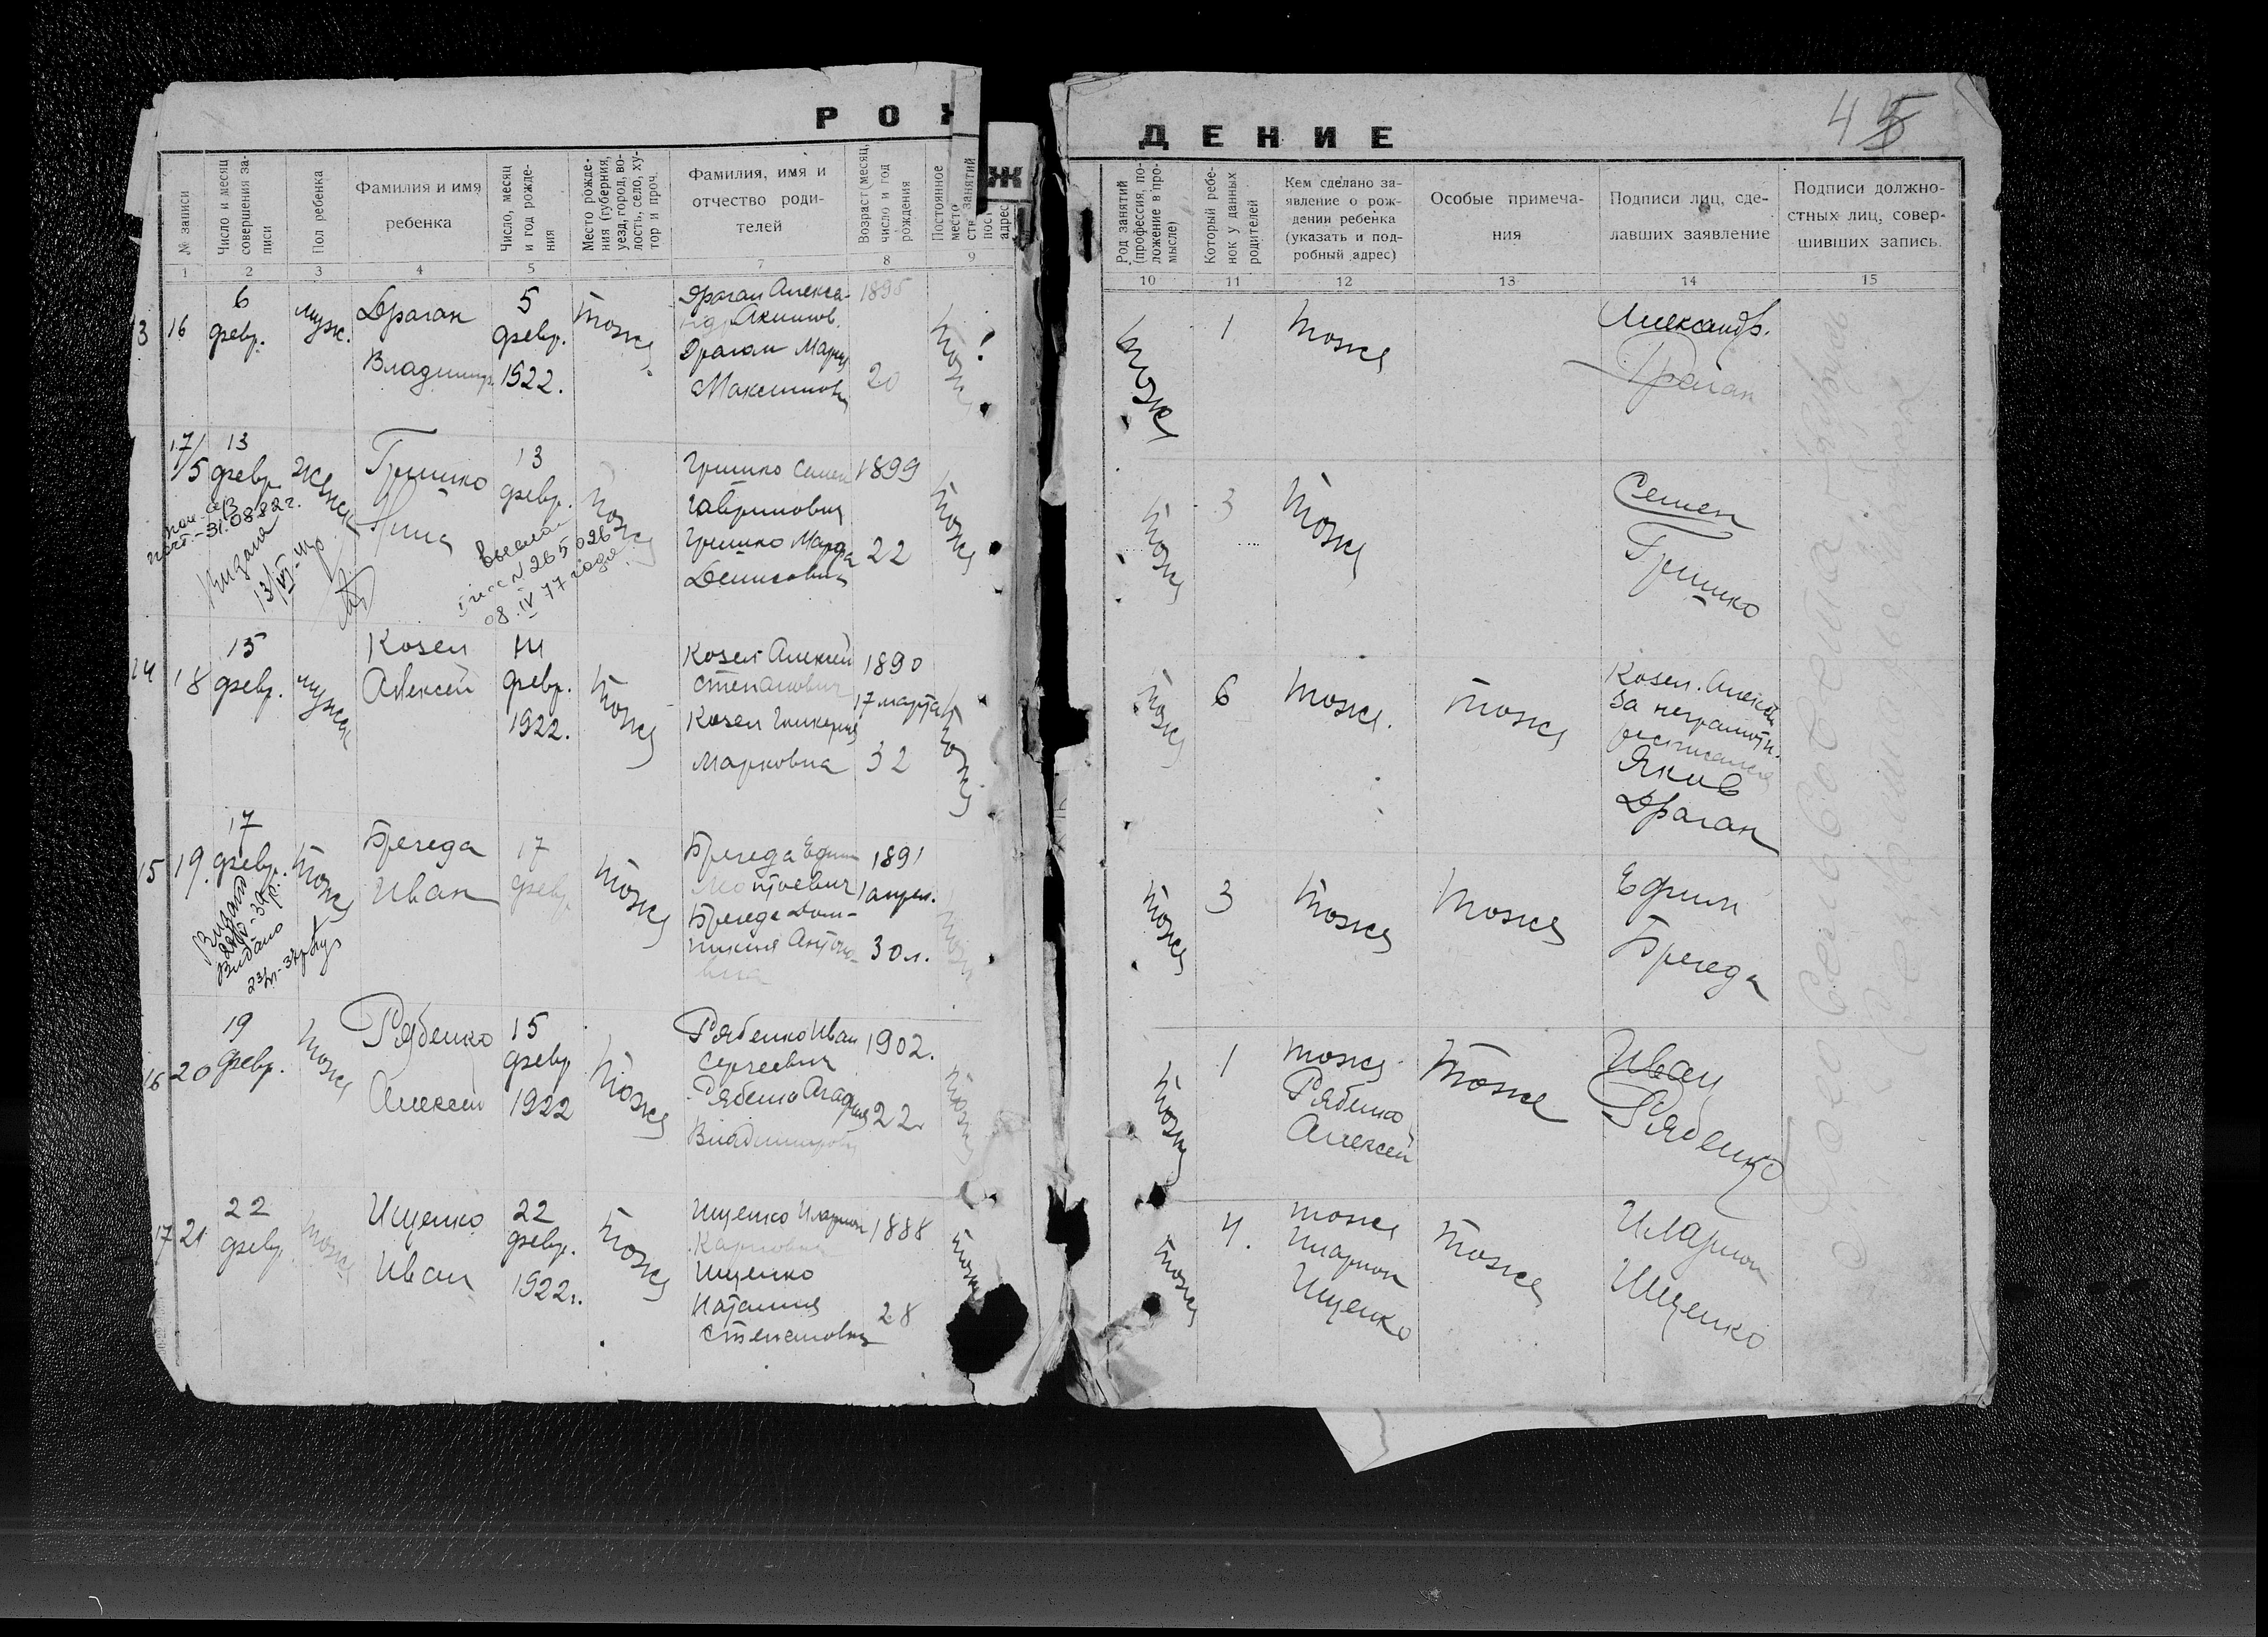 РОЖ
ДЕНИЕ
45
№ записи
Число и месяц
совершения за-
писи
Пол ребенка
Фамилия и имя
ребенка
Число, месяц
и год рожде-
ния
Место рожде-
ния (губерния,
уезд, город, во-
лость, село, ху-
тор и проч.
Фамилия, имя и
отчество роди-
телей
Возраст (месяц,
число и год
рождения
Постоянное
место
занятий
адрес
Род занятий
(профессия, по-
ложение в про-
мысле)
Который ребе-
нок у данных
родителей
Кем сделано за-
явление о рож-
дении ребенка
(указать и под-
робный адрес)
Особые примеча-
ния
Подписи лиц, сде-
лавших заявление
Подписи должно-
стных лиц, совер-
шивших запись.
1 2 3 4 5 7 8 9 10 11 12 13 14 15
3 16
6
февр.
муж.
Драган
Владимир
5
февр.
1922.
тоже
Драган Алекса-
ндр Акимов.
Драган Мария
Максимовн
1895
20
тоже
тоже
1
тоже
Александр.
Драган
17/5
13
февр.
женск
Гришко
Нина
13
февр.
тоже
Гришко Семен
Гаврилович
Гришко Марфа
Денисовна
1899
22
тоже
31.08.82 г.
Видана
13/VI
№ 265026
08.IV 77 года
тоже
3
тоже
Семен
Гришко
14 18
15
февр.
мужск
Козел
Алексей
14
февр.
1922.
тоже
Козел Алексей
Степанович
Козел Гликерия
Марковна
1890
17 марта
32
тоже
тоже
6
тоже.
тоже
Козел. Алексей
за неграмотн.
расписался
Яков
Драган
15 19.
17
февр.
тоже
Брегеда
Иван
17
февр
тоже
Брегеда Ефим
Брегеда Дом-
1891
1 апрел.
30 л.
тоже
Видано
тоже
3
тоже
тоже
Ефим
Брегеда
16 20
19
февр.
тоже
Рябенко
Алексей
15
февр
1922
тоже
Рябенко Иван
Сергеевич
Рябенко Агафия
Владимировн
1902.
22
тоже
тоже
1
тоже
Рябенко
Алексей
тоже
Иван
Рябенко
17 21
22
февр
тоже
Ищенко
Иван
22
февр.
1922 г.
тоже
Ищенко Иларион
Карпович
Ищенко
Наталия
Степановна
1888
28
тоже
тоже
4.
тоже
Иларион
Ищенко
тоже
Иларион
Ищенко